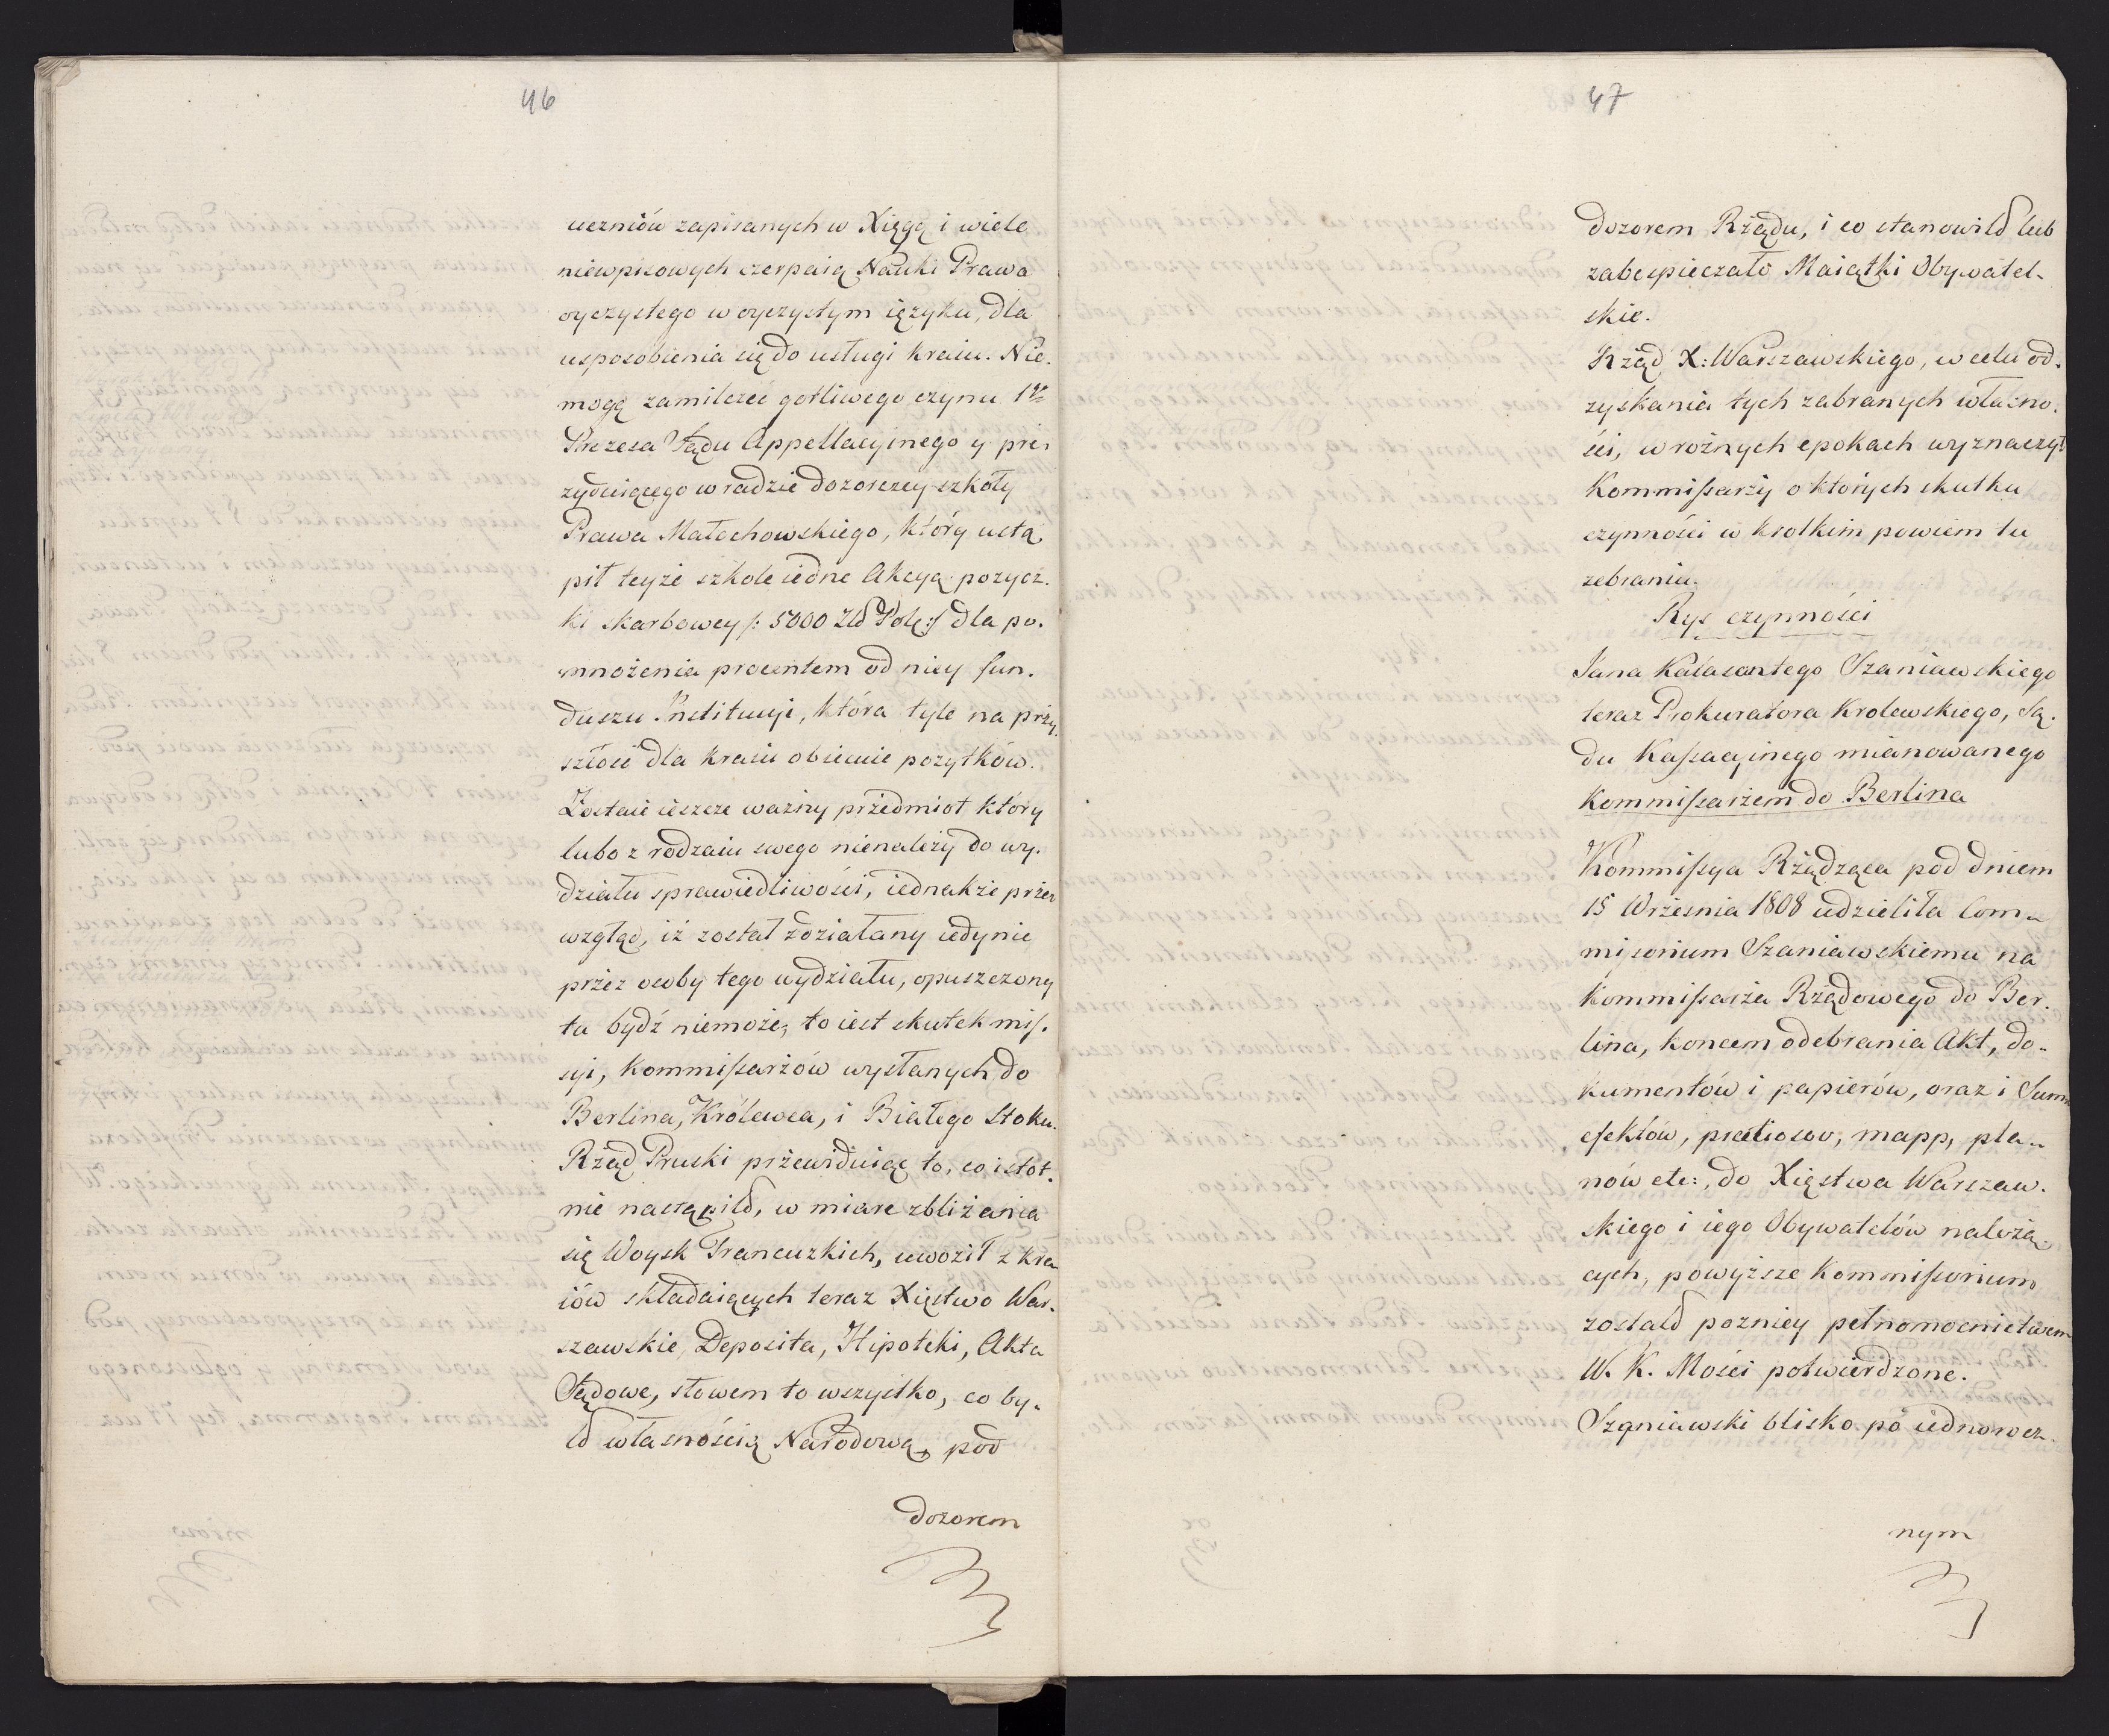 46
uczniów zapisanych w Xięgę i wiele
niewpisowych czerpaią Nauki Prawa
oyczystego w oyczystym ięzyku, dla
usposobienia się do usługi kraiu. Nie-
mogę zamilczeć gorliwego czynu 1go
Prezesa Sądu Appellacyinego y pre-
zyduiącego w radzie dozorczey szkoły
Prawa Małachowskiego, który ustą-
pił teyże szkole iedne Akcyą pożycz-
ki skarbowey /: 5000 Zło Pols:/ dla po-
mnożenia procentem od niey fun-
duszu Instytucyi, która tyle na przy-
szłość dla kraiu obiecuie pożytków.
Zostaie ieszcze ważny przedmiot który
lubo z rodzaiu swego nienależy do wy-
działu sprawiedliwości, iednakże przez
wzgląd, iż został zdziałany iedynie
przez osoby tego wydziału, opuszczony
tu bydź niemoże, to iest skutek miſ-
syi, Kommiſsarzów wysłanych do
Berlina, Królewca, i Białego Stoku.
Rząd Pruski przewiduiąc to, co istot-
nie nastąpiło, w miare zbliżania
się Woysk Francuzkich, uwoził z kra-
iów składaiących teraz Xięstwo War-
szawskie, Deposita, Hipoteki, Akta
Sądowe, słowem to wszystko, co by-
ło własnością Narodową, pod
dozorem
47
dozorem Rządu, i co stanowiło lub
zabespieczało Maiątki Obywatel-
skie.
Rząd X: Warszawskiego, w celu od-
zyskania tych zabranych własno-
ści, w rożnych epokach wyznaczył
Kommiſsarzy o których skutku
czynności w krotkim powiem tu
zebraniu.
Rys czynności
Jana Kalasantego Szaniawskiego
teraz Prokuratora Krolewskiego, Są-
du Kaſsacyinego mianowanego
Kommiſsarzem do Berlina
Kommiſsya Rządząca pod dniem
15 Września 1808 udzieliła Com-
miſsorium Szaniawskiemu na
Kommiſsarza Rządowego do Ber-
lina, koncem odebrania Akt, do-
kumentów i papierów, oraz i Summ
efektów, pretiosow, mapp, pla-
nów etc:, do Xięstwa Warszaw-
skiego i iego Obywatelów należą-
cych, powyższe Kommiſsorium
zostało poźniey pełnomocnictwem
W. K. Mości potwierdzone.
Szaniawski blisko po iednorocz-
nym